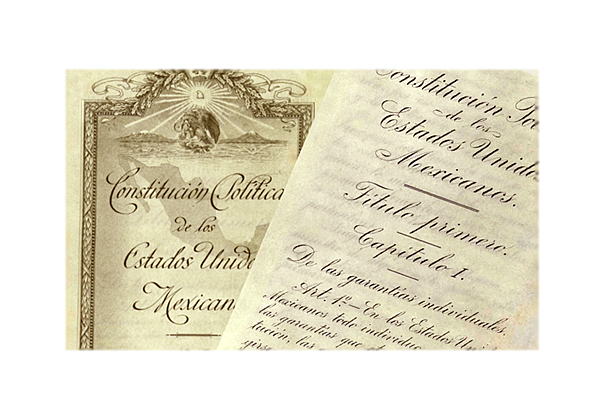 Constitución Política
de los
Estados Unido
Mexican
Constitución Po
de los
Estados Unido
Mexicanos.
Título primero.
Capítulo I.
De las garantías individuales.
Art. 1º— En los Estados Uni
Mexicanos todo individuo
las garantías que
tución, las
girse